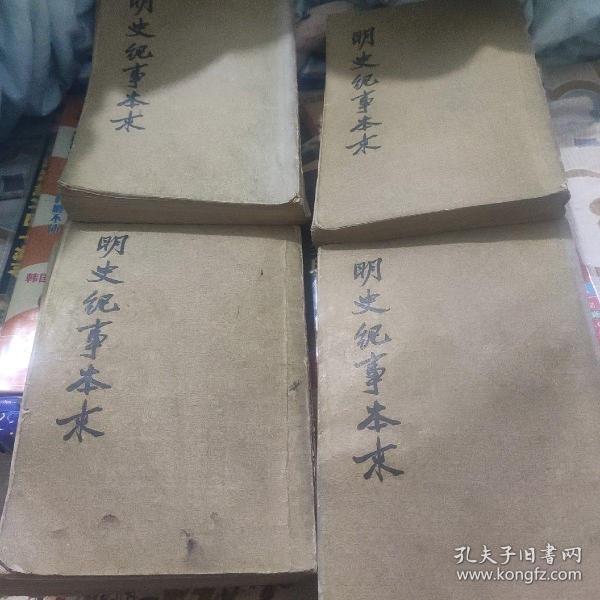 明史纪事本末
明史纪事本末
明史纪事本末
明史纪事本末
韩国
孔夫子旧书网
www.kongfz.com